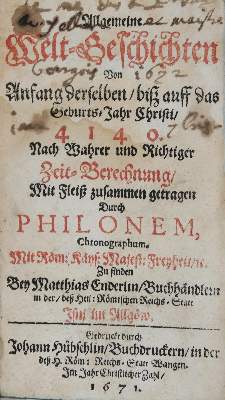 Allgemeine
Welt-Geschichten
Von
1692
Anfang derselben/ biß auff das
Geburts-Jahr Christi/
4140.
Nach Wahrer und Richtiger
Zeit-Berechnung/
Mit Fleiß zusammen getragen
Durch
PHILONEM,
Chronographum.
Mit Röm: Käys: Majest: Freyheit/ꝛc.
Zu finden
Bey Matthias Enderlin/Buchhändlern
in der/ deß Heil: Römischen Reichs-Statt
Ißni im Allgöw.
Gedruckt durch
Johann Hübschlin/Buchdruckern/in der
deß H. Röm: Reichs-Statt Wangen.
Im Jahr Christlicher Zahl/
1671.